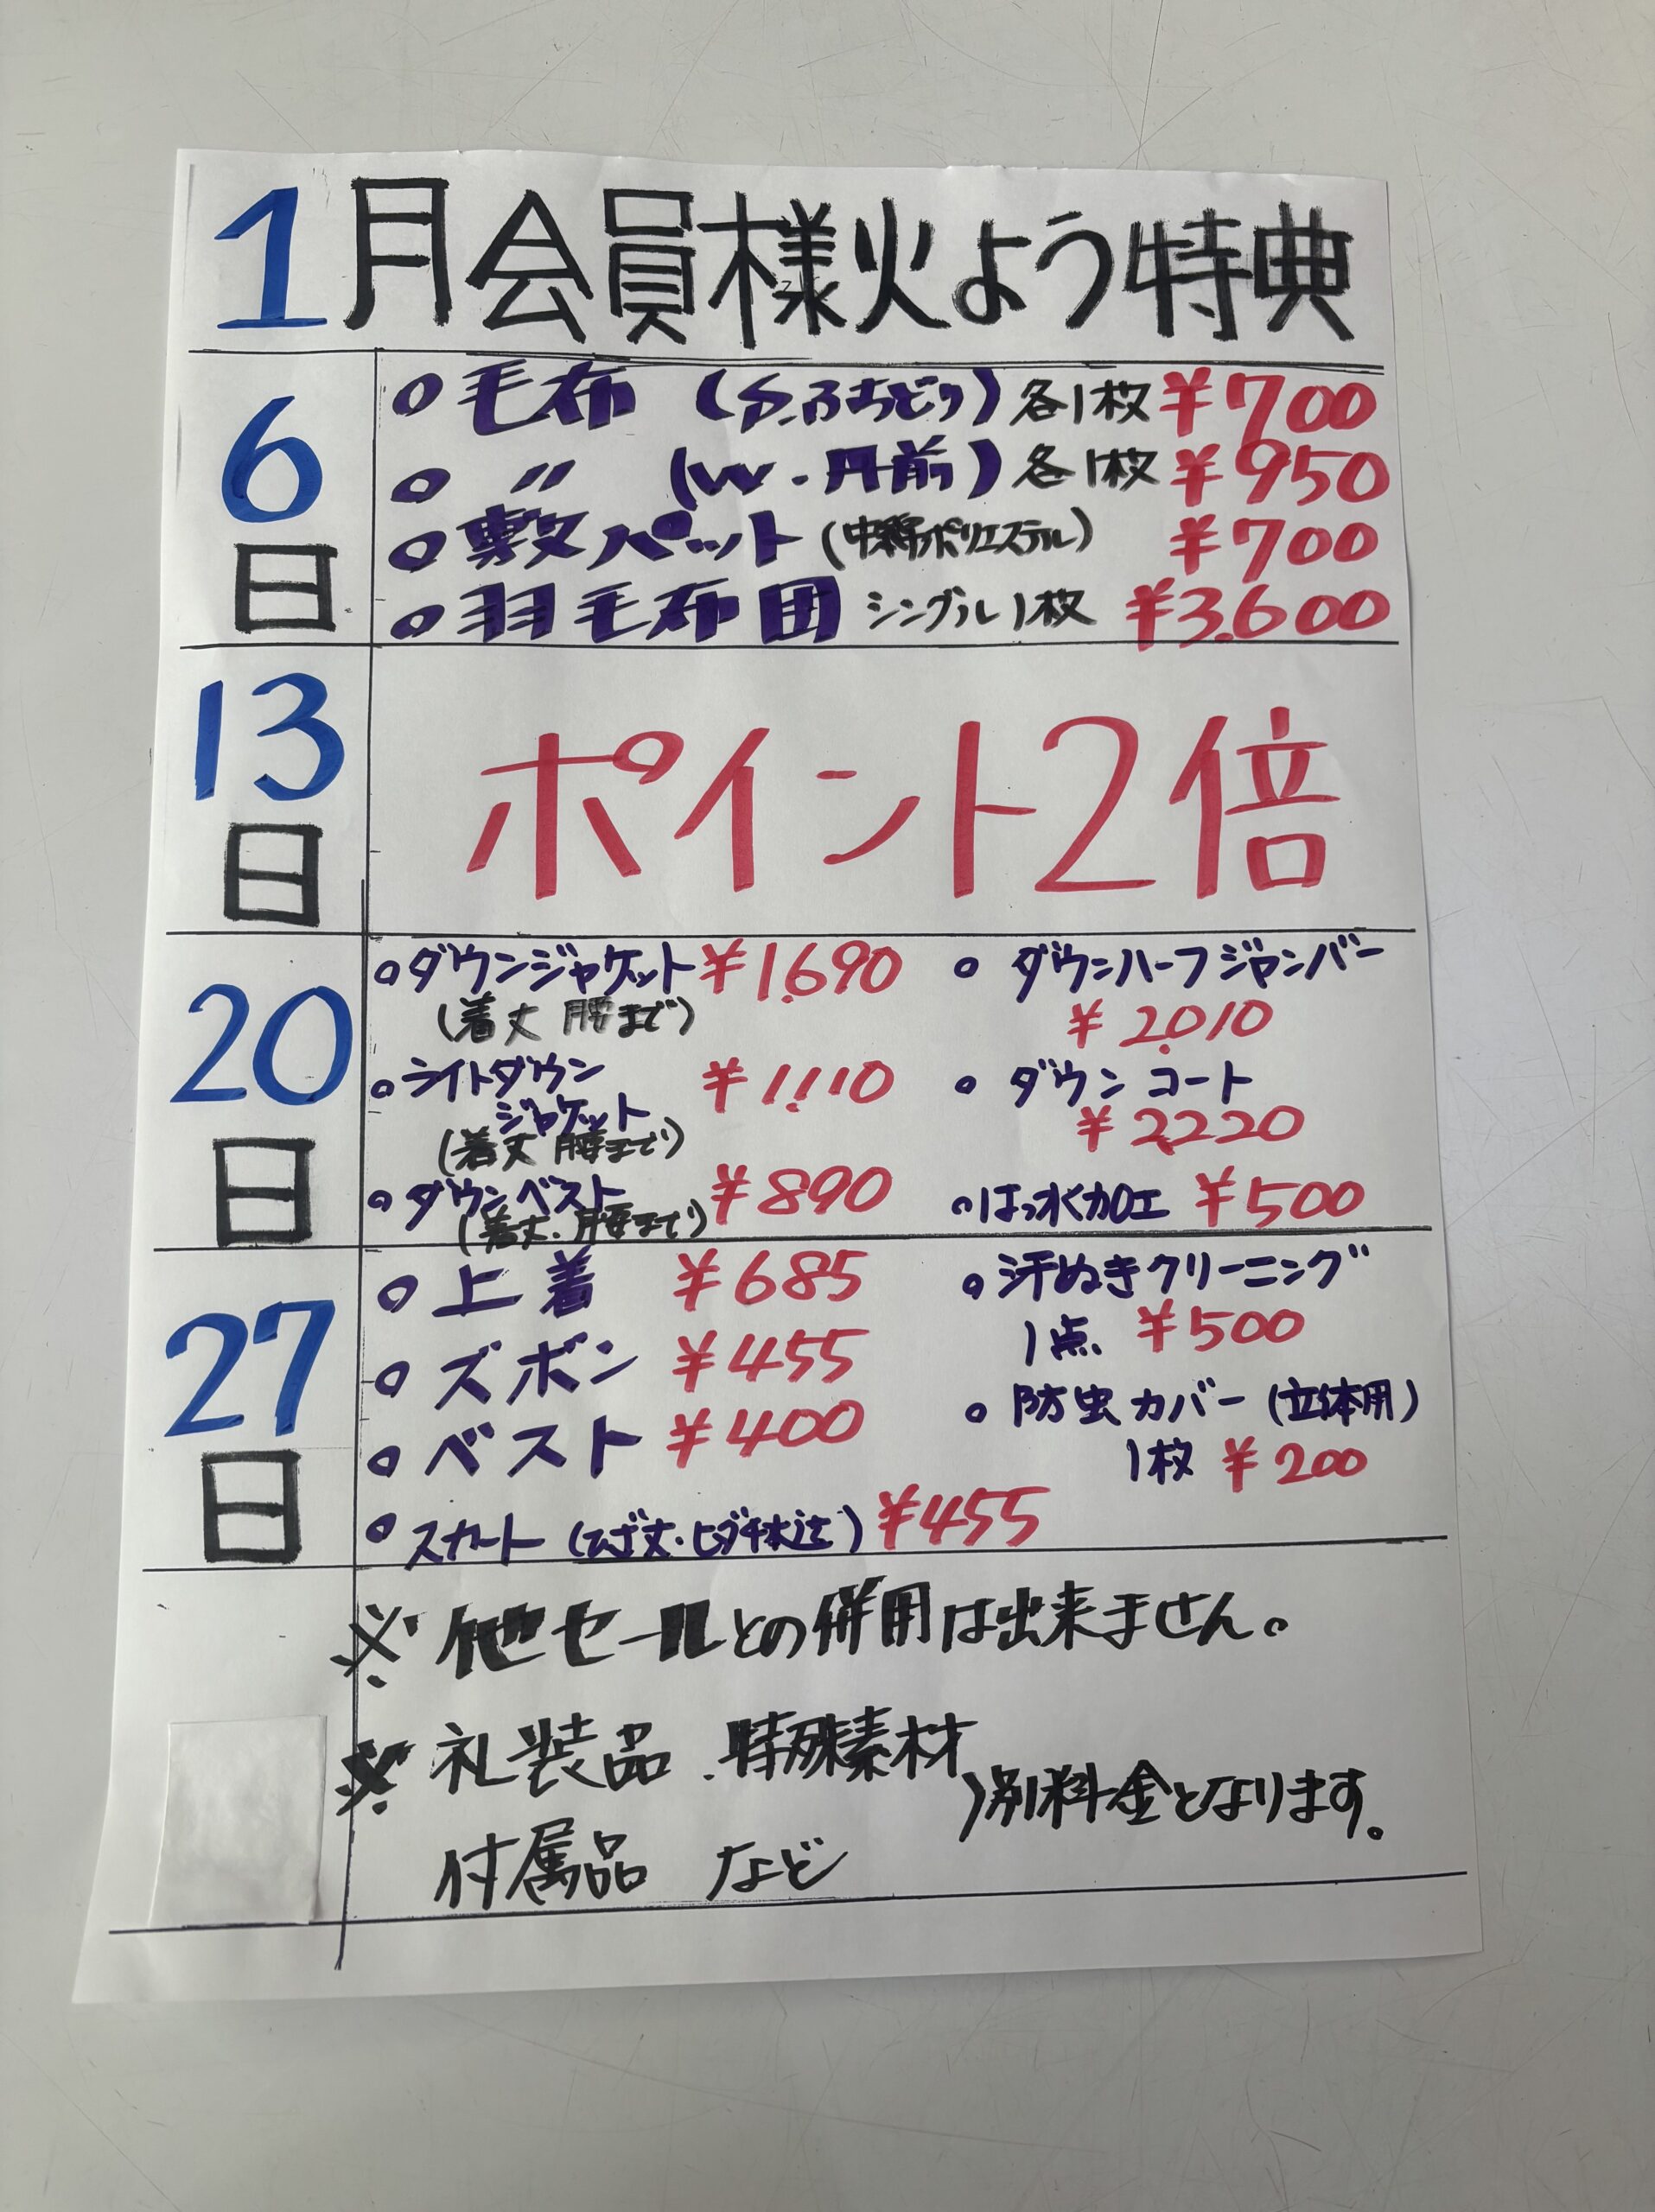 1月会員様火よう特典
6日
○毛布(S.ふちどり)各1枚¥700
○〃(W.丹前)各1枚¥950
○敷パット(中綿ポリエステル)¥700
○羽毛布団 シングル1枚 ¥3.600
13日
ポイント2倍
20日
○ダウンジャケット¥1.690
(着丈 腰まで)
○ライトダウン
ジャケット ¥1.110
(着丈 腰まで)
○ダウンベスト ¥890
(着丈.腰まで)
○ダウンハーフジャンパー
¥2.010
○ダウンコート
¥2.220
○はっ水加工 ¥500
27日
○上着 ¥685
○ズボン ¥455
○ベスト ¥400
○スカート(ひざ丈・ヒダ4本迄)¥455
○汗ぬきクリーニング
1点 ¥500
○防虫カバー(立体用)
1枚 ¥200
※他セールとの併用は出来ません。
※礼装品.特殊素材
付属品 など
)別料金となります。